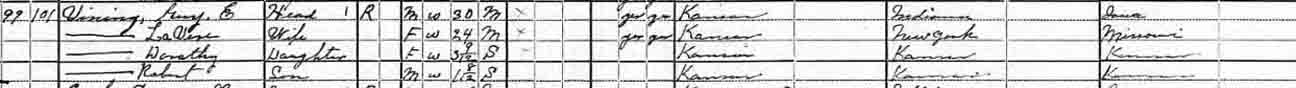 99 101 Vining, Guy. E Head 1 R M W 30 M X yes yes Kansas Indiana Iowa
—— LaVere Wife F W 24 M X yes yes Kansas New York Missouri
—— Dorathy Daughter F W 3 9/12 S Kansas Kansas Kansas
—— Robert Son M W 1 8/12 S Kansas Kansas Kansas